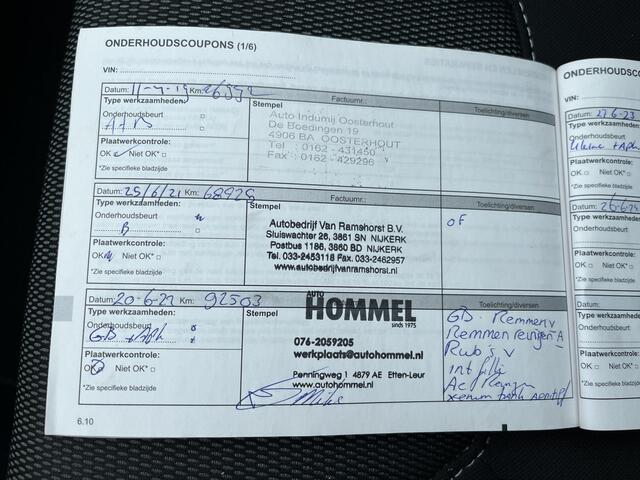 ONDERHOUDSCOUPONS (1/6)
VIN:
Datum: 11-7-19 Km:
Factuurnr.:
Toelichting/diversen
Type werkzaamheden:
Onderhoudsbeurt
A+B
Plaatwerkcontrole:
OK Niet OK*
*Zie specifieke bladzijde
Stempel
Auto Indumij Oosterhout
De Boedingen 19
4906 BA OOSTERHOUT
Tel : 0162 - 431450
Fax : 0162 - 429296
Datum: 25/6/21 Km: 68928
Factuurnr.:
Toelichting/diversen
Type werkzaamheden:
Onderhoudsbeurt
B
Plaatwerkcontrole:
OK Niet OK*
*Zie specifieke bladzijde
Stempel
Autobedrijf Van Ramshorst B.V.
Sluiswachter 26, 3861 SN NIJKERK
Postbus 1186, 3860 BD NIJKERK
Tel. 033-2453118 Fax. 033-2462957
www.autobedrijfvanramshorst.nl
OF
Datum: 20-6-22 Km: 92503
Toelichting/diversen
Type werkzaamheden:
Onderhoudsbeurt
GB + Aph
Plaatwerkcontrole:
OK Niet OK*
*Zie specifieke bladzijde
Stempel
AUTO
HOMMEL
sinds 1975
076-2059205
werkplaats@autohommel.nl
Penningweg 1 4879 AE Etten-Leur
www.autohommel.nl
GB. Remmen v
Remmen reinigen A
Rub's v
int filter
Ac Reinigen
6.10
ONDERHOUDSCOUPONS
VIN:
Datum: 27-6-23
Type werkzaamheden:
Onderhoudsbeurt
Kleine + Aph
Plaatwerkcontrole:
OK Niet OK*
*Zie specifieke bladzijde
Datum:
Type werkzaamheden:
Onderhoudsbeurt
Plaatwerkcontrole:
OK Niet OK*
*Zie specifieke bladzijde
Datum:
Type werkzaamheden:
Onderhoudsbeurt
Plaatwerkcontrole:
OK Niet OK*
*Zie specifieke bladzijde